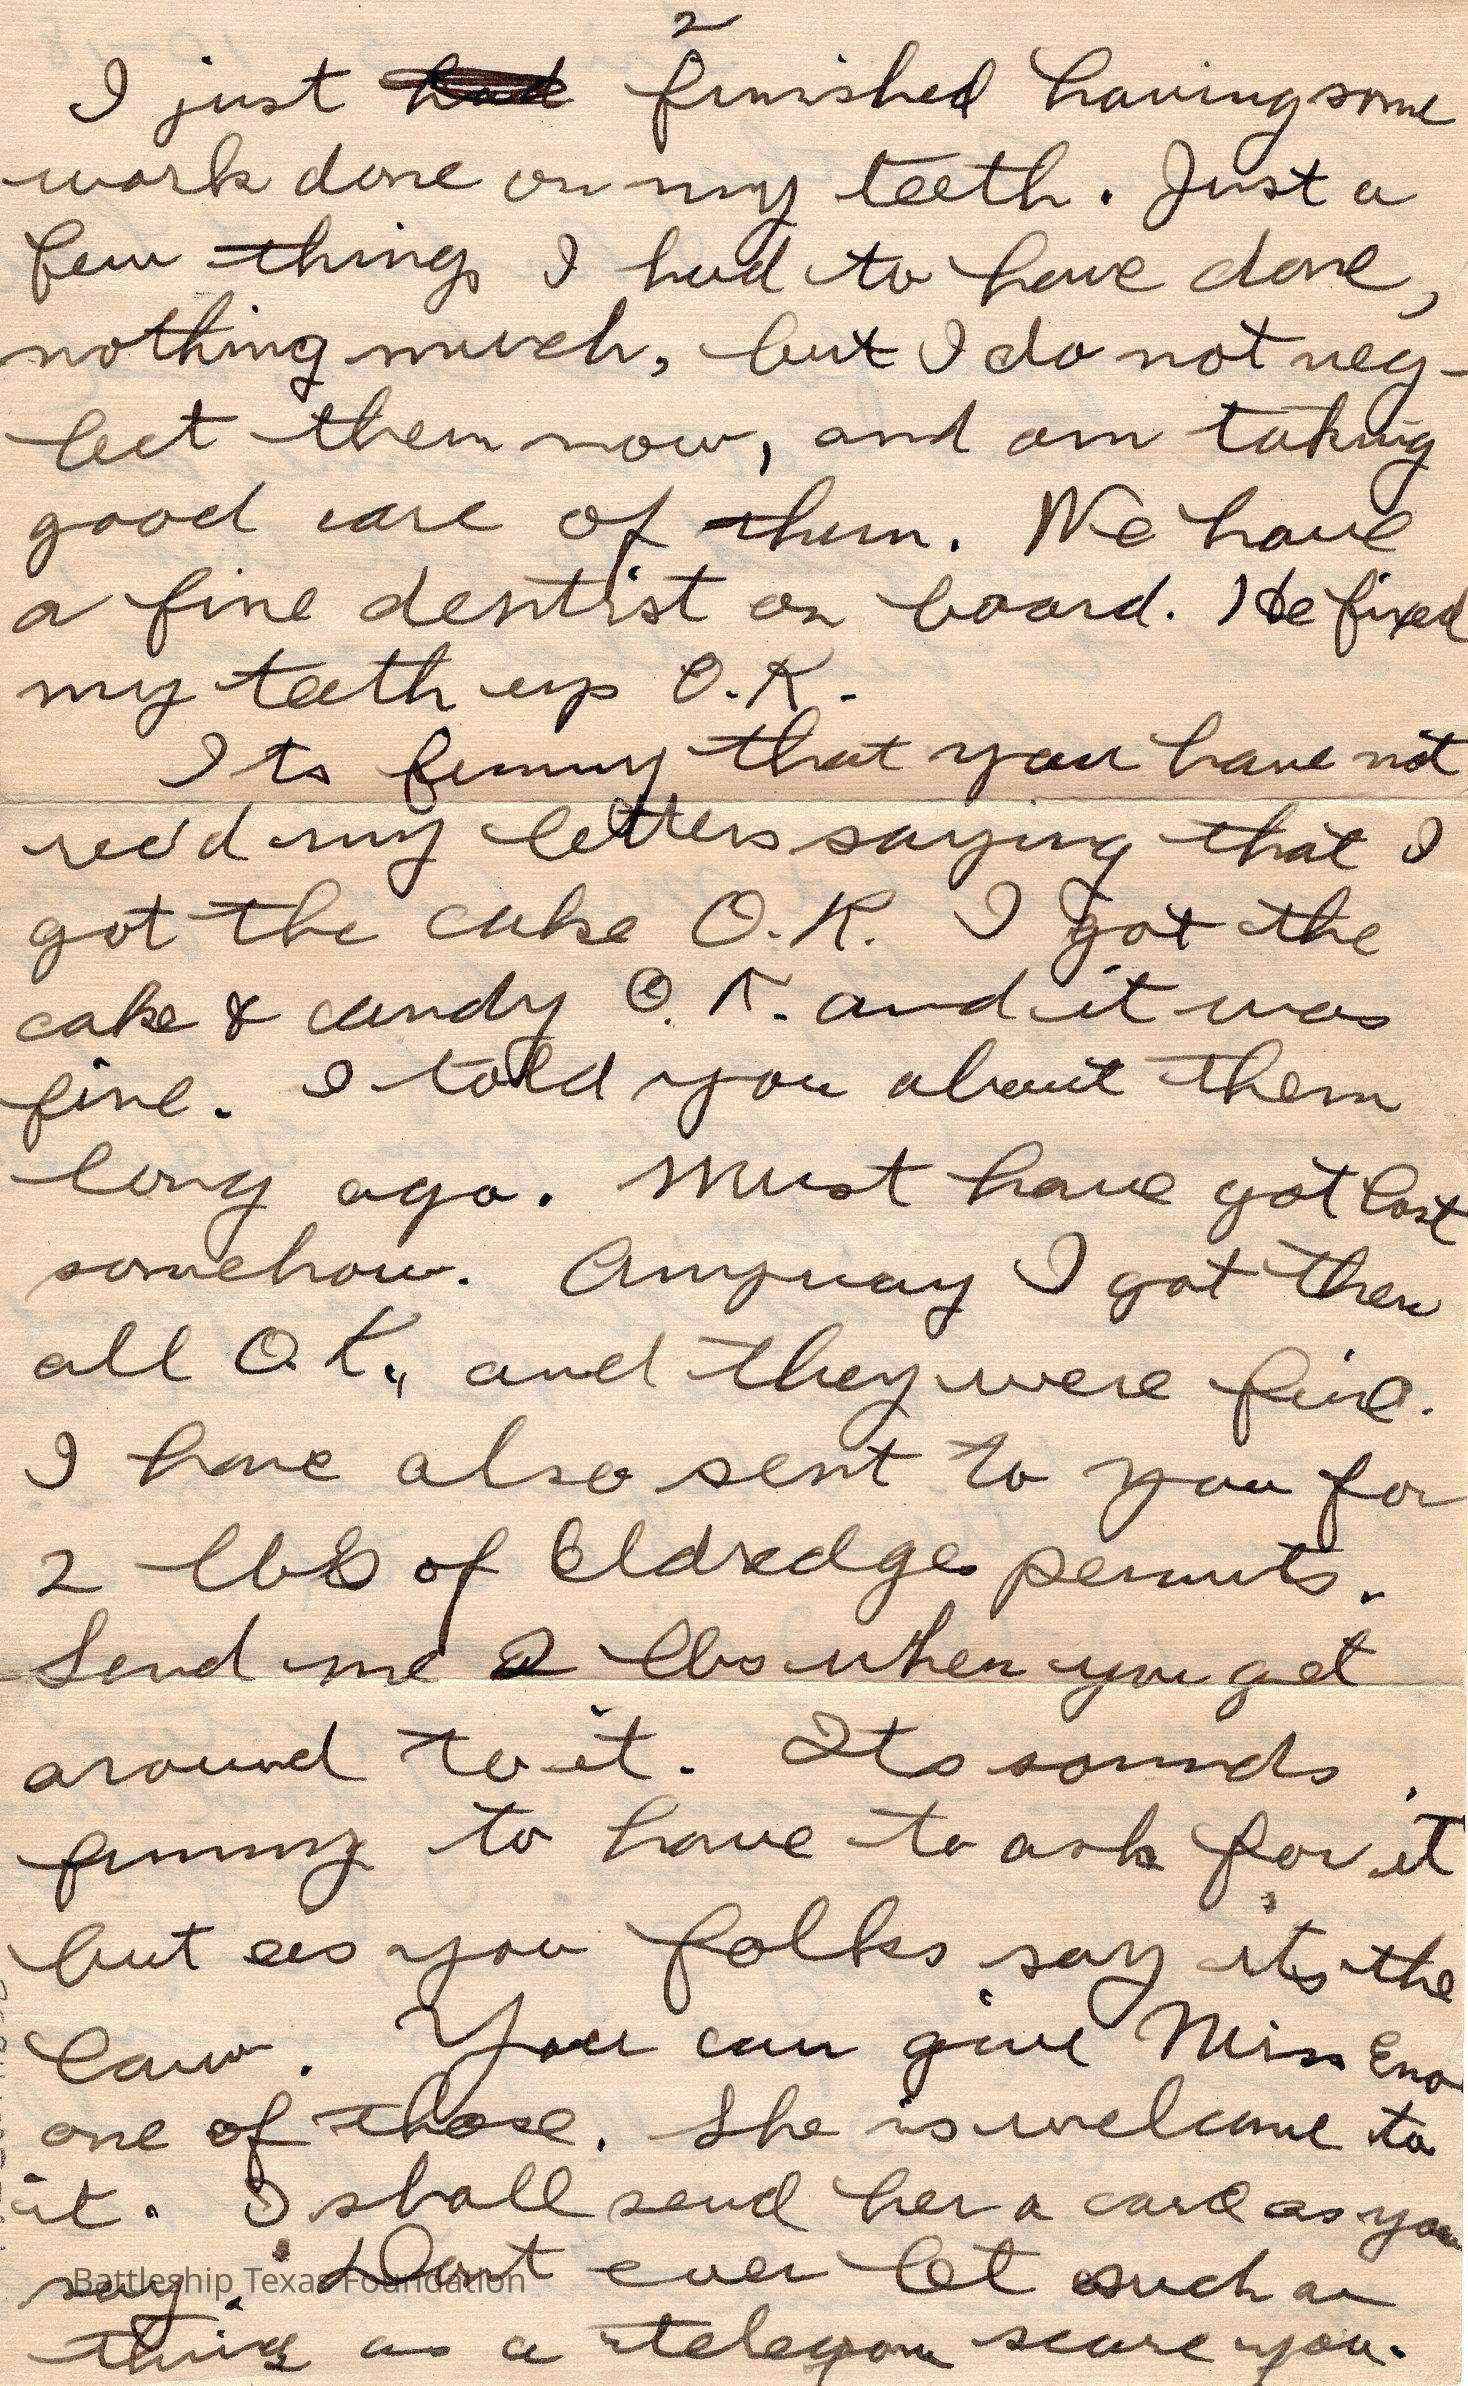 2
I just had finished having some
work done on my teeth. Just a
few things I had to have done,
nothing much, but I do not neg-
lect them now, and am taking
good care of them. We have
a fine dentist on board. He fixed
my teeth up O.K.
Its funny that you have not
rec'd my letters saying that I
got the cake O.K. I got the
cake & candy O.K. and it was
fine. I told you about them
long ago. Must have got lost
somehow. Anyway I got them
all O.K., and they were fine.
I have also sent to you for
2 lbs of Eldredges penuts.
Send me 2 lbs when you get
around to it. Its sounds
funny to have to ask for it
but as you folks say its the
law. You can give Miss Eno
one of those. She is welcome to
it. I shall send her a card as you
say. Dont ever let such a
thing as a telegram scare you.
Battleship Texas Foundation